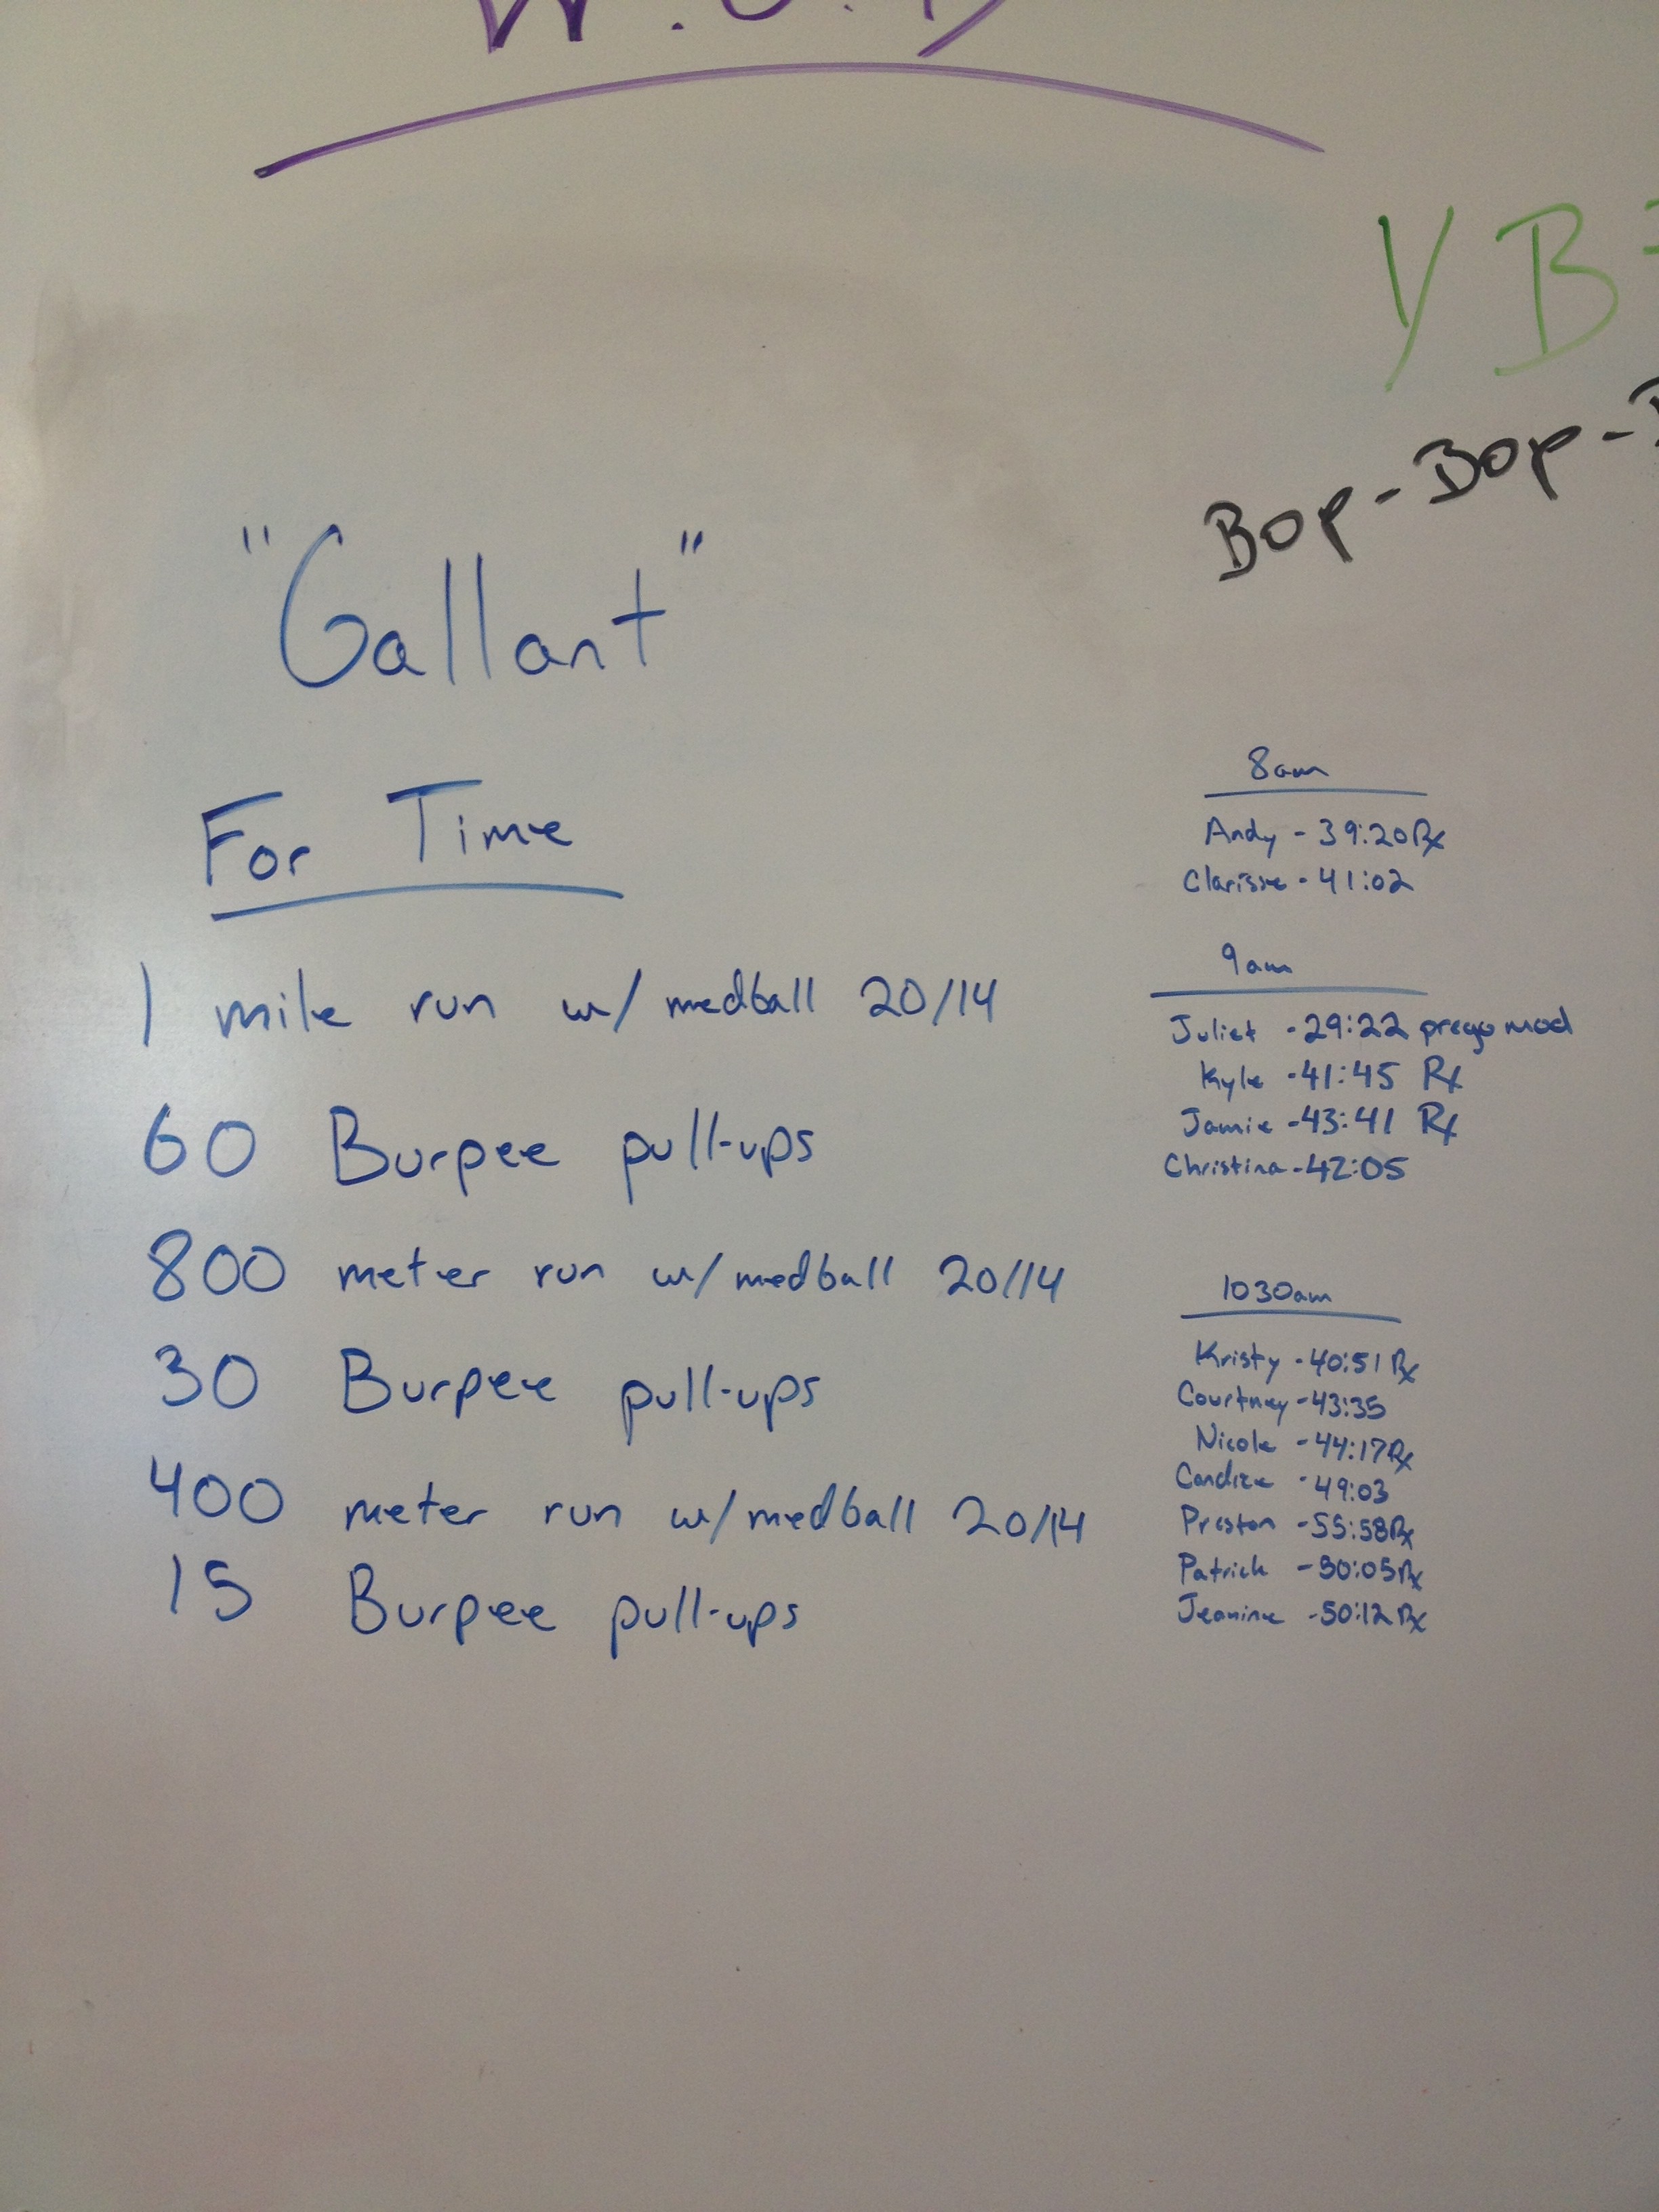 W.O.D
YB
Bop-Bop-
"Gallant"
For Time
1 mile run w/ medball 20/14
60 Burpee pull-ups
800 meter run w/ medball 20/14
30 Burpee pull-ups
400 meter run w/ medball 20/14
15 Burpee pull-ups
8am
Andy - 39:20 Rx
Clarisse - 41:02
9am
Juliet - 29:22 prego mod
Kyle - 41:45 Rx
Jamie - 43:41 Rx
Christina - 42:05
1030am
Kristy - 40:51 Rx
Courtney - 43:35
Nicole - 44:17 Rx
Candice - 49:03
Preston - 55:58 Rx
Patrick - 50:05 Rx
Jeanine - 50:12 Rx